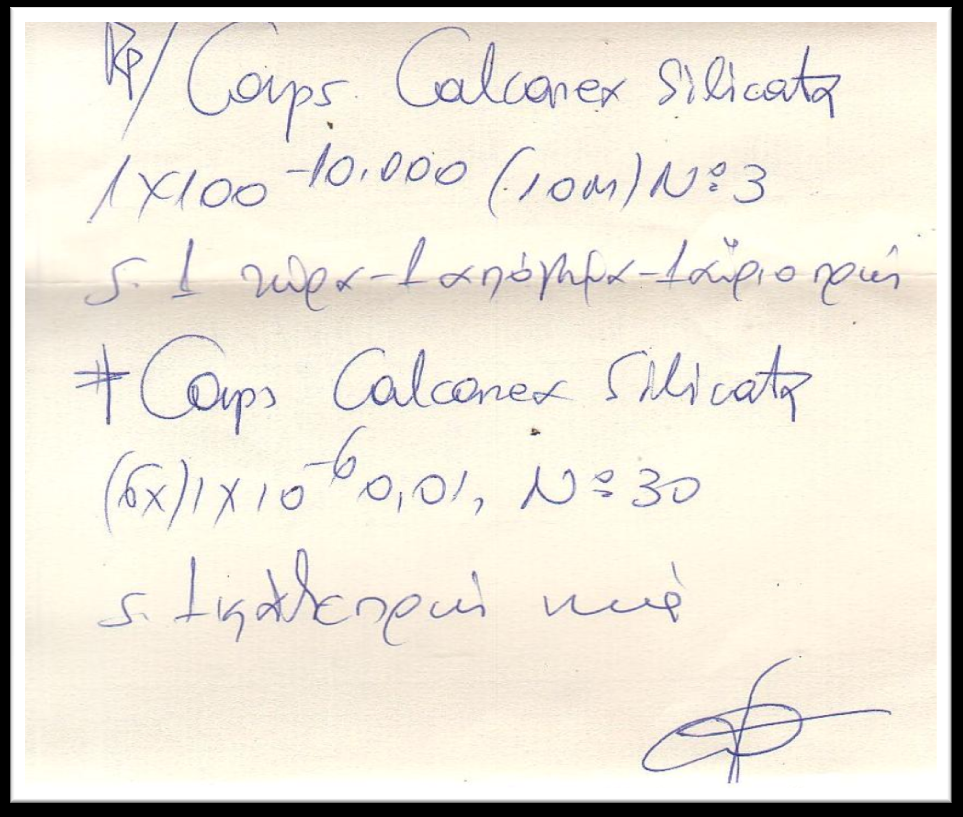 Rp/ Caps. Calcarea Silicata
1X100^-10.000 (10M) Nº 3
S. 1 τώρα-1 απόγευμα-1 αύριο πρωί
# Caps Calcarea Silicata
(6x) 1X10^-6 0,01, Nº 30
S. 1 κάθε πρωί